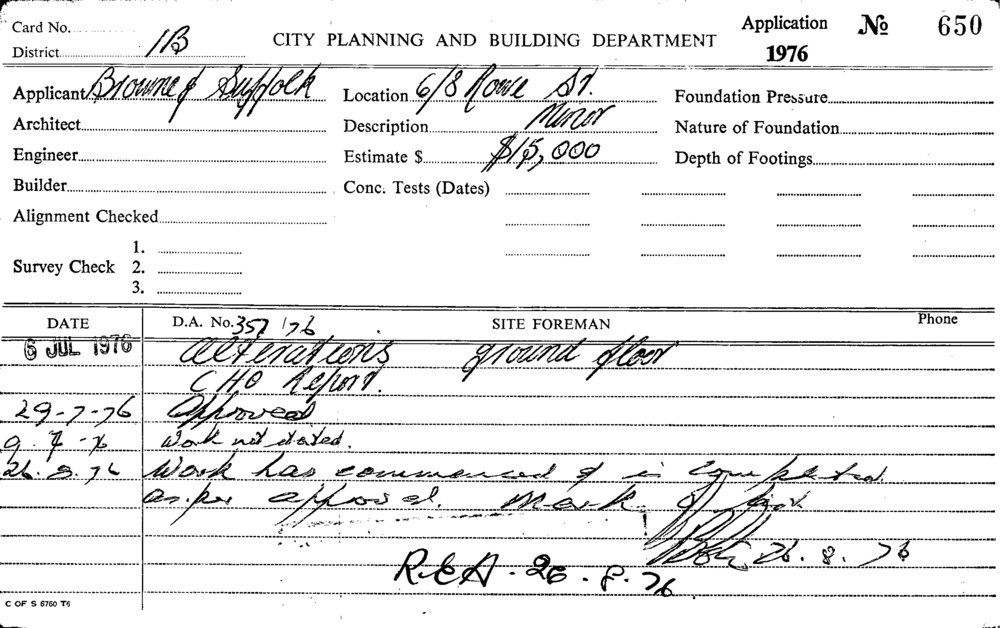 Card No.
District 1B
CITY PLANNING AND BUILDING DEPARTMENT
Application № 650
1976
Applicant Browne & Suffolk
Location 6/8 Rowe St.
Foundation Pressure
Architect
Description Minor
Nature of Foundation
Engineer
Estimate $ $15,000
Depth of Footings
Builder
Conc. Tests (Dates)
Alignment Checked
Survey Check 1.
2.
3.
DATE D.A. No. 357/76 SITE FOREMAN Phone
6 JUL 1976 Alterations ground floor
CHO Report.
29-7-76 Approved
Work not started.
26.8.76 Work has commenced & is completed
as per approval. Mark
26.8.76
R.E.A. 26.8.76
C OF S 6760 T6